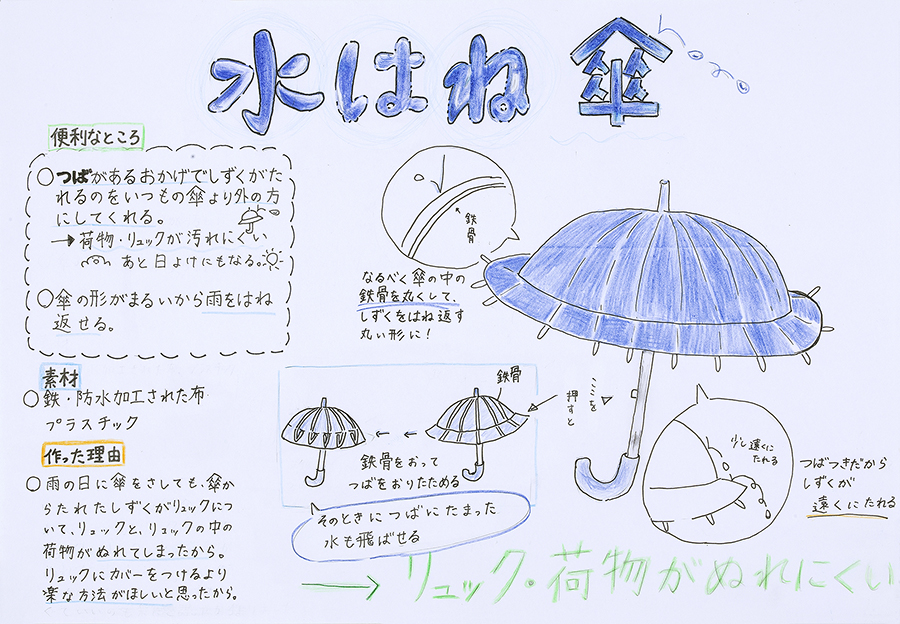 水はね傘
便利なところ
○つばがあるおかげでしずくがた
れるのをいつもの傘より外の方
にしてくれる。
→荷物・リュックが汚れにくい
あと日よけにもなる。
○傘の形がまるいから雨をはね
返せる。
素材
○鉄・防水加工された布
プラスチック
作った理由
○雨の日に傘をさしても、傘か
らたれたしずくがリュックにつ
いて、リュックと、リュックの中の
荷物がぬれてしまったから。
リュックにカバーをつけるより
楽な方法がほしいと思ったから。
鉄骨
なるべく傘の中の
鉄骨を丸くして、
しずくをはね返す
丸い形に!
鉄骨
ここを
押すと
鉄骨をおって
つばをおりたためる
そのときにつばにたまった
水も飛ばせる
少し遠くに
たれる
つばつきだから
しずくが
遠くにたれる
→リュック・荷物がぬれにくい